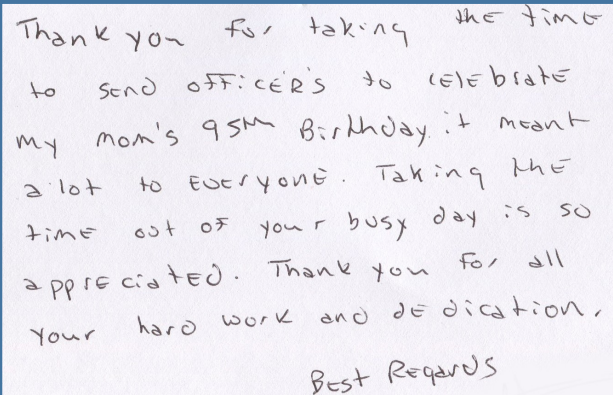 Thank you for taking the time
to send officer's to celebrate
my mom's 95th Birthday. it meant
a lot to everyone. Taking the
time out of your busy day is so
appreciated. Thank you for all
your hard work and dedication.
Best Regards